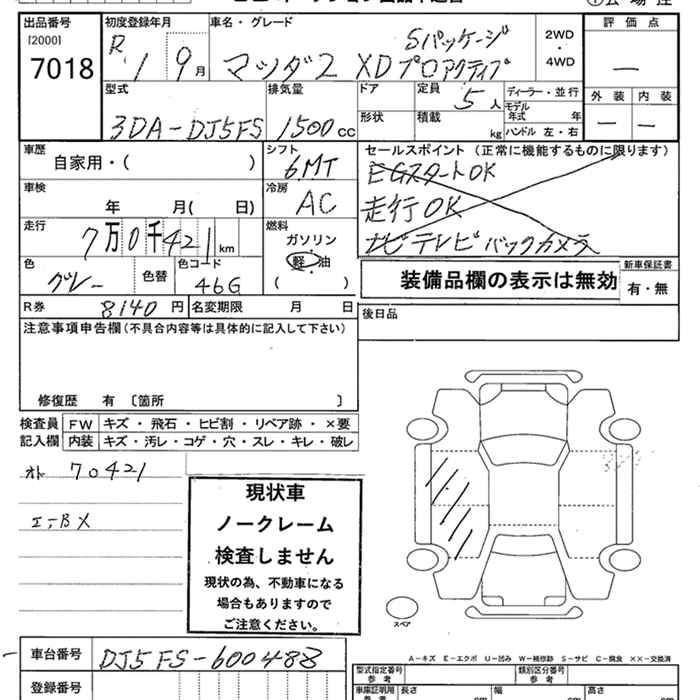 出品番号 初度登録年月 車名・グレード 評価点
[2000] R 1 9月 マツダ2 XDプロアクティブ Sパッケージ 2WD ・ 4WD
7018 外装 内装
型式 排気量 ドア 定員 5人 ディーラー・並行
3DA-DJ5FS 1500cc 形状 積載 kg モデル年式 年
ハンドル 左・右
車歴 自家用・( ) シフト 6MT セールスポイント (正常に機能するものに限ります)
EGスタートOK
車検 年 月( 日) 冷房 AC 走行OK
走行 7万0千421km 燃料 ガソリン・軽油 ( ) ナビテレビバックカメラ
色 グレー 色替 色コード 46G 装備品欄の表示は無効 新車保証書 有・無
R券 8140円 名変期限 月 日 後日品
注意事項申告欄 (不具合内容等は具体的に記入して下さい)
修復歴 有 〔箇所 〕
検査員 FW キズ・飛石・ヒビ割・リペア跡・×要
記入欄 内装 キズ・汚レ・コゲ・穴・スレ・キレ・破レ
オド 70421
エーBX
現状車
ノークレーム
検査しません
現状の為、不動車になる
場合もありますので
ご注意ください。
スペア
A-キズ E-エクボ U-凹み W-補修跡 S-サビ C-腐食 ××-交換済
車台番号 DJ5FS-600488 型式指定番号 参考 類別区分番号 参考
登録番号 車庫証明用 参考 長さ cm 幅 cm 高さ cm